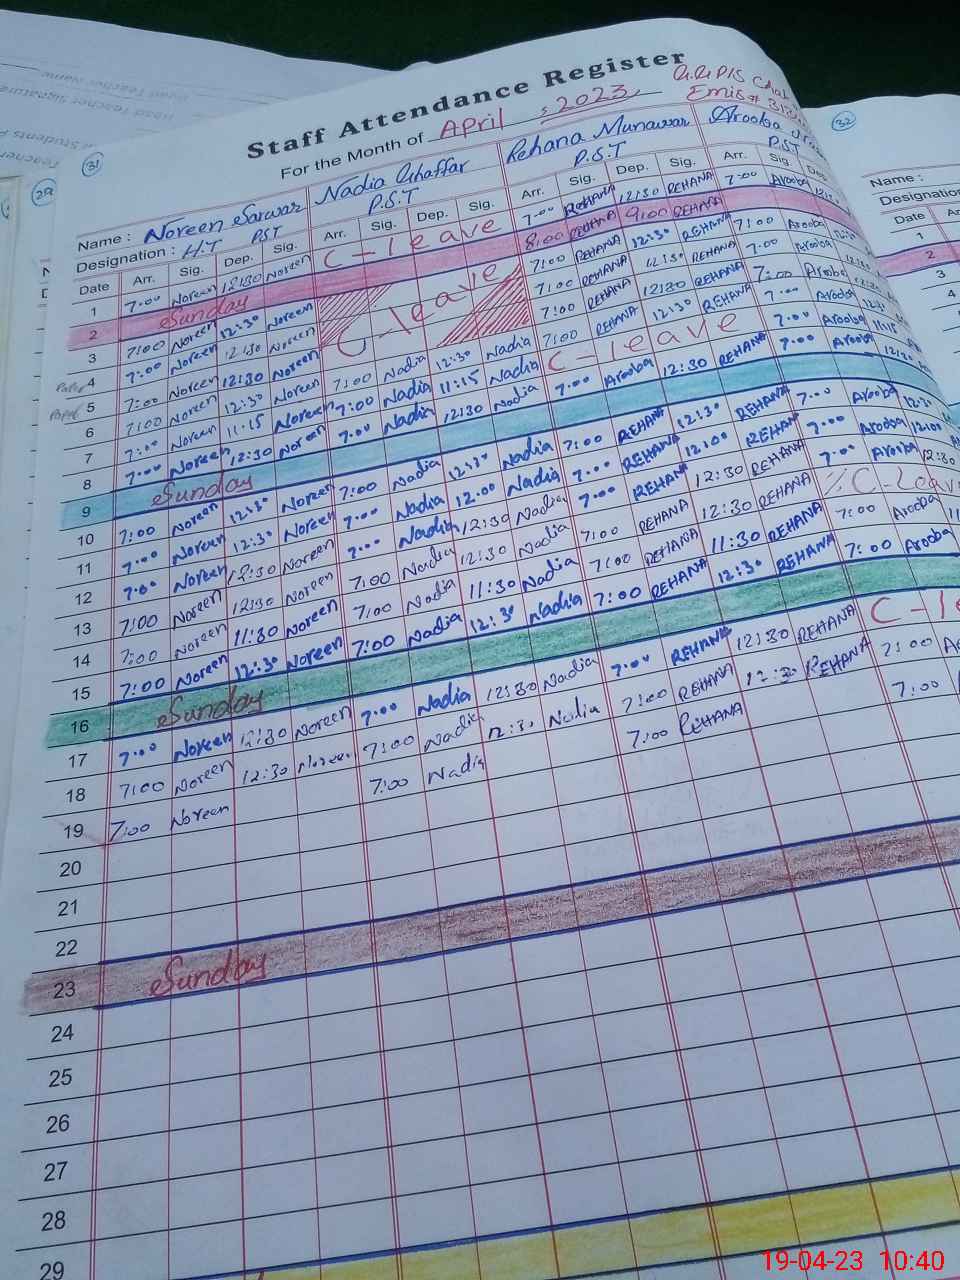 Staff Attendance Register
For the Month of April, 2023
31
32
29
Emis#
Name : Noreen Sarwar Nadia Ghaffar Rehana Munawar Arooba
Designation : H.T PST P.S.T P.S.T PST
Date Arr. Sig. Dep. Sig. Arr. Sig. Dep. Sig. Arr. Sig. Dep. Sig. Arr. Sig
1 7:00 Noreen 12:30 Noreen C-leave 7:00 REHANA 12:30 REHANA 7:00 Arooba
2 Sunday 8:00 REHANA 9:00 REHANA
3 7:00 Noreen 12:30 Noreen C-leave 7:00 REHANA 12:30 REHANA 7:00 Arooba
4 7:00 Noreen 12:30 Noreen 7:00 REHANA 12:30 REHANA 7:00 Arooba
5 7:00 Noreen 12:30 Noreen 7:00 REHANA 12:30 REHANA 7:00 Arooba
6 7:00 Noreen 12:30 Noreen 7:00 Nadia 12:30 Nadia 7:00 REHANA 12:30 REHANA 7:00 Arooba
7 7:00 Noreen 11:15 Noreen 7:00 Nadia 11:15 Nadia C-leave 7:00 Arooba 11:15
8 7:00 Noreen 12:30 Noreen 7:00 Nadia 12:30 Nadia 7:00 Arooba 12:30 REHANA 7:00 Arooba
9 Sunday
10 7:00 Noreen 12:30 Noreen 7:00 Nadia 12:30 Nadia 7:00 REHANA 12:30 REHANA 7:00 Arooba 12:30
11 7:00 Noreen 12:30 Noreen 7:00 Nadia 12:00 Nadia 7:00 REHANA 12:00 REHANA 7:00 Arooba 12:00
12 7:00 Noreen 12:30 Noreen 7:00 Nadia 12:30 Nadia 7:00 REHANA 12:30 REHANA 7:00 Arooba 12:30
13 7:00 Noreen 12:30 Noreen 7:00 Nadia 12:30 Nadia 7:00 REHANA 12:30 REHANA C-Leave
14 7:00 Noreen 11:30 Noreen 7:00 Nadia 11:30 Nadia 7:00 REHANA 11:30 REHANA 7:00 Arooba
15 7:00 Noreen 12:30 Noreen 7:00 Nadia 12:30 Nadia 7:00 REHANA 12:30 REHANA 7:00 Arooba
16 Sunday
17 7:00 Noreen 12:30 Noreen 7:00 Nadia 12:30 Nadia 7:00 REHANA 12:30 REHANA
18 7:00 Noreen 12:30 Noreen 7:00 Nadia 12:30 Nadia 7:00 REHANA 12:30 REHANA 7:00
19 7:00 Noreen 7:00 Nadia 7:00 REHANA 7:00
20
21
22
23 Sunday
24
25
26
27
28
29
Name :
Designation
Date
1
2
3
4
19-04-23 10:40